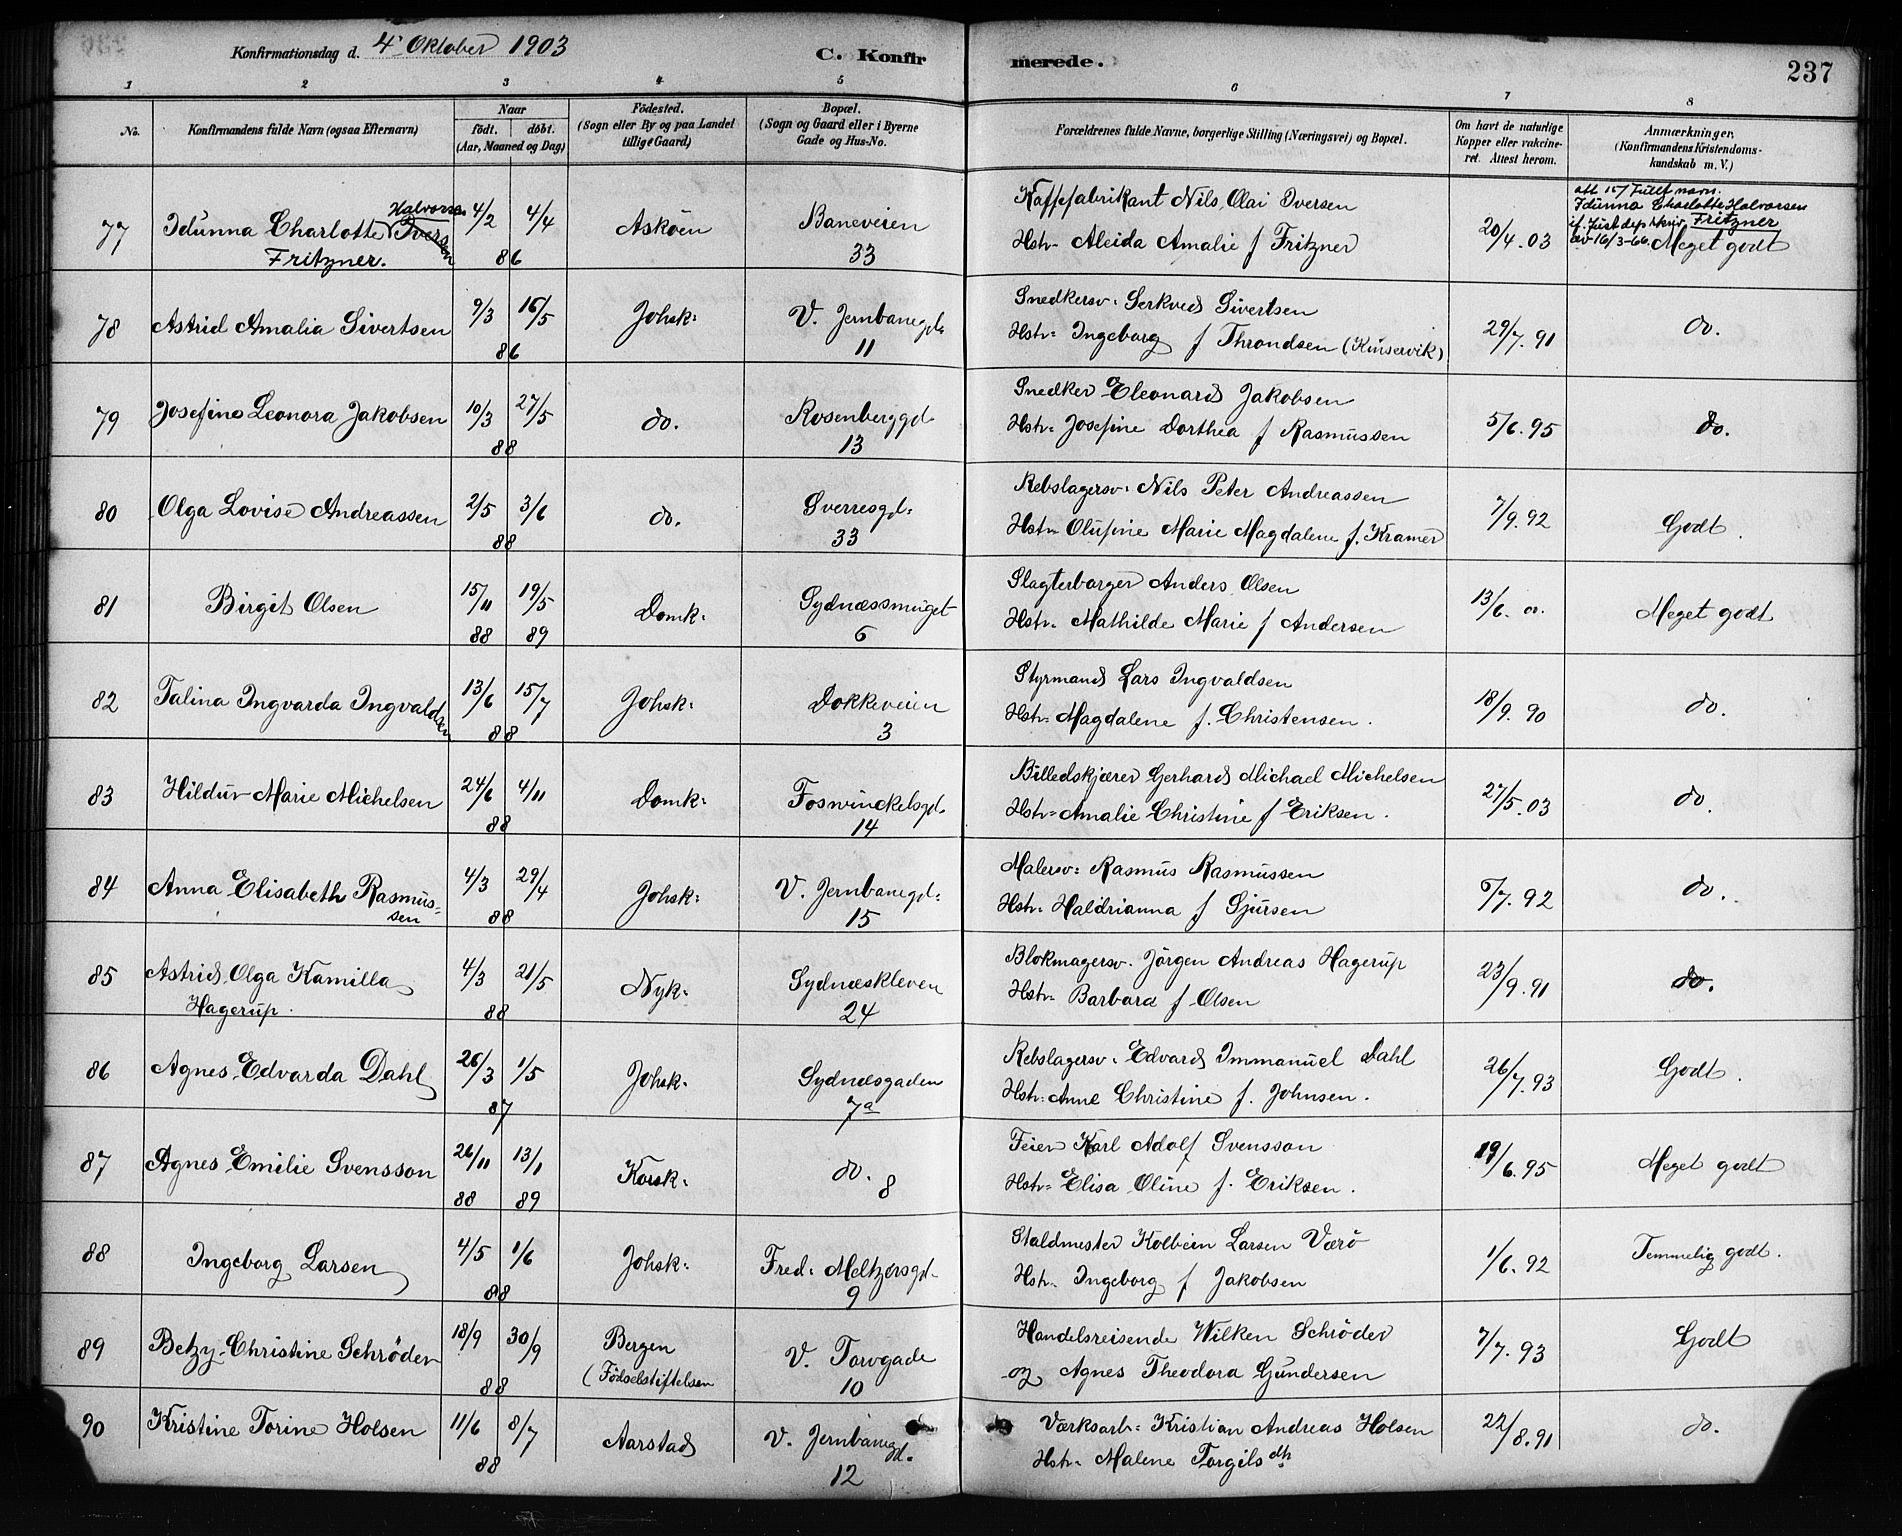 Konfirmationsdag d. 4' Oktober 1903
C. Konfirmerede.
237
1 2 3 4 5 6 7 8
No.
Konfirmandens fulde Navn (ogsaa Efternavn)
Naar
födt. döbt.
(Aar, Maaned og Dag)
Födested.
(Sogn eller By og paa Landet
tillige Gaard)
Bopæl.
(Sogn og Gaard eller i Byerne
Gade og Hus-No.
Forældrenes fulde Navne, borgerlige Stilling (Næringsvei) og Bopæl.
Om havt de naturlige
Kopper eller vakcine-
ret. Attest herom.
Anmærkninger.
(Konfirmandens Kristendoms-
kundskab m. V.)
77 Idunna Charlotte Iversen Halvorsen
Fritzner.
4/2 4/4
86
Askøen
Baneveien
33
Kaffefabrikant Nils Olai Iversen
Hstr. Aleida Amalie f Fritzner
20/4. 03
att 15/ Fullt navn.
Idunna Charlotte Halvorsen
Fritzner
jf. Just.dep. skriv
av 16/3-66. Meget godt
78 Astrid Amalia Sivertsen
9/3 16/5
86
Johsk:
V. Jernbanegd:
11
Snedkersv: Serkved Sivertsen
Hstr: Ingeborg f Throndsen (Kinservik)
29/7. 91
do.
79 Josefine Leonora Jakobsen
10/3 27/5
88
do.
Rosenberggd.
13
Snedker Eleonard Jakobsen
Hstr: Josefine Dorthea f Rasmussen
5/6. 95
do.
80 Olga Lovise Andreassen
2/5 3/6
88
do.
Sverresgd:
33
Rebslagersv: Nils Peter Andreassen
Hstr: Olufine Marie Magdalene f. Kramer
7/9. 92
Godt.
81 Birgit Olsen
15/11 19/5
88 89
Domk:
Sydnæssmuget
6
Slagterborger Anders Olsen
Hstr. Mathilde Marie f Andersen
13/6. 00.
Meget godt
82 Talina Ingvarda Ingvaldsen
13/6 15/7
88
Johsk:
Dokkeveien
3
Styrmand Lars Ingvaldsen
Hstr: Magdalene f. Christensen.
18/9. 90
do.
83 Hildur Marie Michelsen
24/6 4/11
88
Domk:
Foswinckelsgd.
14
Billedskjærer Gerhard Michael Michelsen
Hstr: Amalie Christine f Eriksen.
27/5. 03
do.
84 Anna Elisabeth Rasmus=
sen
4/3 29/4
88
Johsk:
V. Jernbanegd:
15
Malersv: Rasmus Rasmussen
Hstr. Haldrianna f Sjursen
5/7. 92
do.
85 Astrid Olga Kamilla
Hagerup.
4/3 21/5
88
Nyk:
Sydnæskleven
24
Blokmagersv. Jörgen Andreas Hagerup
Hstr. Barbara f Olsen
23/9. 91
do.
86 Agnes Edvarda Dahl
26/3 1/5
87
Johsk.
Sydnæsgaden
7a
Rebslagersv. Edvard Immanuel Dahl
Hstr: Anne Christine f. Johnsen.
26/7. 93
Godt.
87 Agnes Emilie Svensson
26/11 13/1
88 89
Korsk:
do. 8
Feier Karl Adolf Svensson
Hstr: Elisa Oline f. Eriksen.
19/6. 95
Meget godt
88 Ingeborg Larsen
4/5 1/6
88
Johsk:
Fred: Meltzersgd.
9
Staldmester Kolbein Larsen Værö
Hstr. Ingeborg f Jakobsen
1/6. 92
Temmelig godt.
89 Betzy Christine Schröder
18/9 30/9
88
Bergen
(Födselsstiftelsen
V. Torvgade
10
Handelsreisende Wilken Schröder
og Agnes Theodora Gundersen
7/7. 93
Godt
90 Kristine Torine Holsen
11/6 8/7
88
Aarstad
V. Jernbanegd.
12
Værksarb: Kristian Andreas Holsen
Hstr. Malene Torgilsdtr
22/8. 91
do.